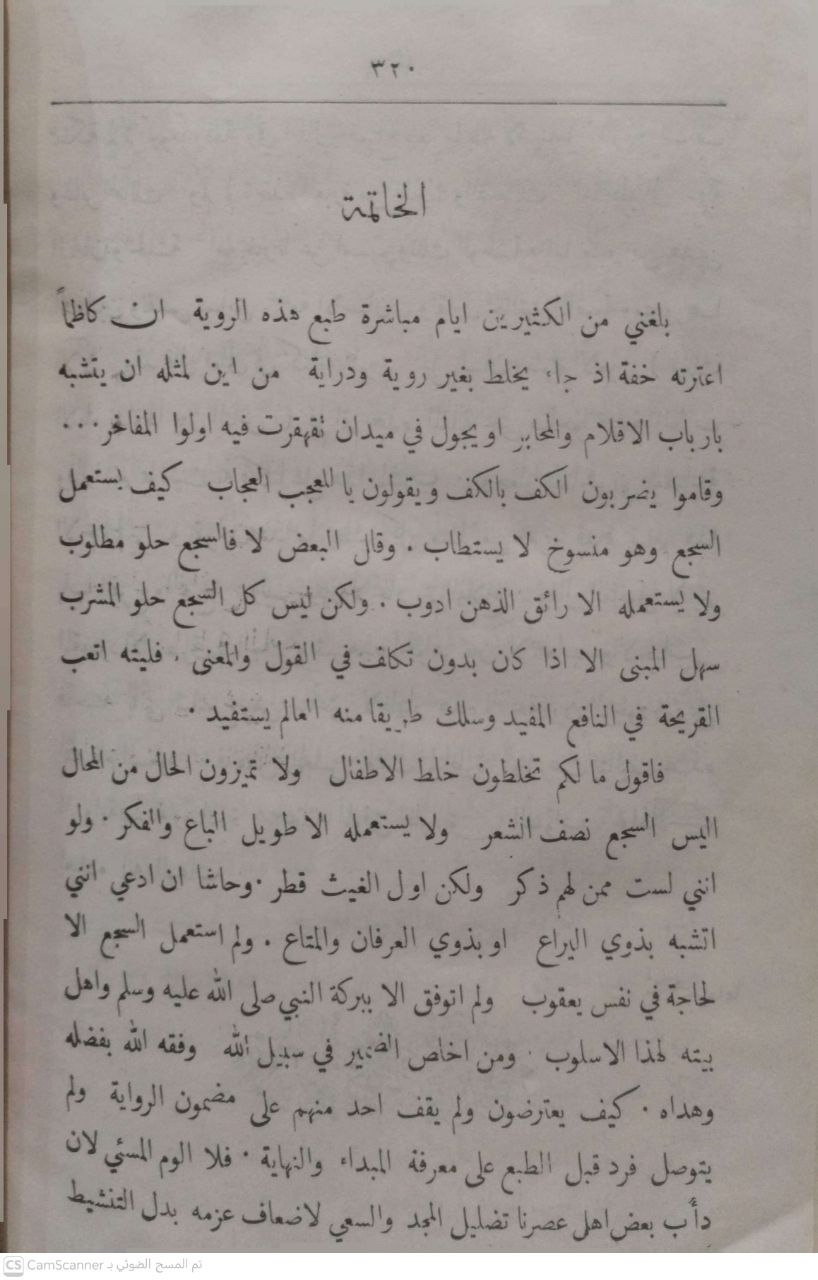 ٣٢٠
الخاتمة
بلغني من الكثيرين ايام مباشرة طبع هذه الروية ان كاظماً
اعترته خفة اذ جاء يخلط بغير روية ودراية من اين لمثله ان يتشبه
بارباب الاقلام والمحابر او يجول في ميدان تقهقرت فيه اولوا المفاخر...
وقاموا يضربون الكف بالكف ويقولون يا للعجب العجاب كيف يستعمل
السجع وهو منسوخ لا يستطاب . وقال البعض لا فالسجع حلو مطلوب
ولا يستعمله الا رائق الذهن ادوب . ولكن ليس كل السجع حلو المشرب
سهل المبنى الا اذا كان بدون تكلف في القول والمعنى . فليته اتعب
القريحة في النافع المفيد وسلك طريقا منه العالم يستفيد .
فاقول ما لكم تخلطون خلط الاطفال ولا تميزون الحال من المحال
اليس السجع نصف الشعر ولا يستعمله الا طويل الباع والفكر . ولو
انني لست ممن لهم ذكر ولكن اول الغيث قطر . وحاشا ان ادعي انني
اتشبه بذوي اليراع او بذوي العرفان والمتاع . ولم استعمل السجع الا
لحاجة في نفس يعقوب ولم اتوفق الا ببركة النبي صلى الله عليه وسلم واهل
بيته لهذا الاسلوب . ومن اخلص الضمير في سبيل الله وفقه الله بفضله
وهداه . كيف يعترضون ولم يقف احد منهم على مضمون الرواية ولم
يتوصل فرد قبل الطبع على معرفة المبداء والنهاية . فلا الوم المسئي لان
دأب بعض اهل عصرنا تضليل المجد والسعي لاضعاف عزمه بدل التنشيط
CS CamScanner تم المسح الضوئي بـ